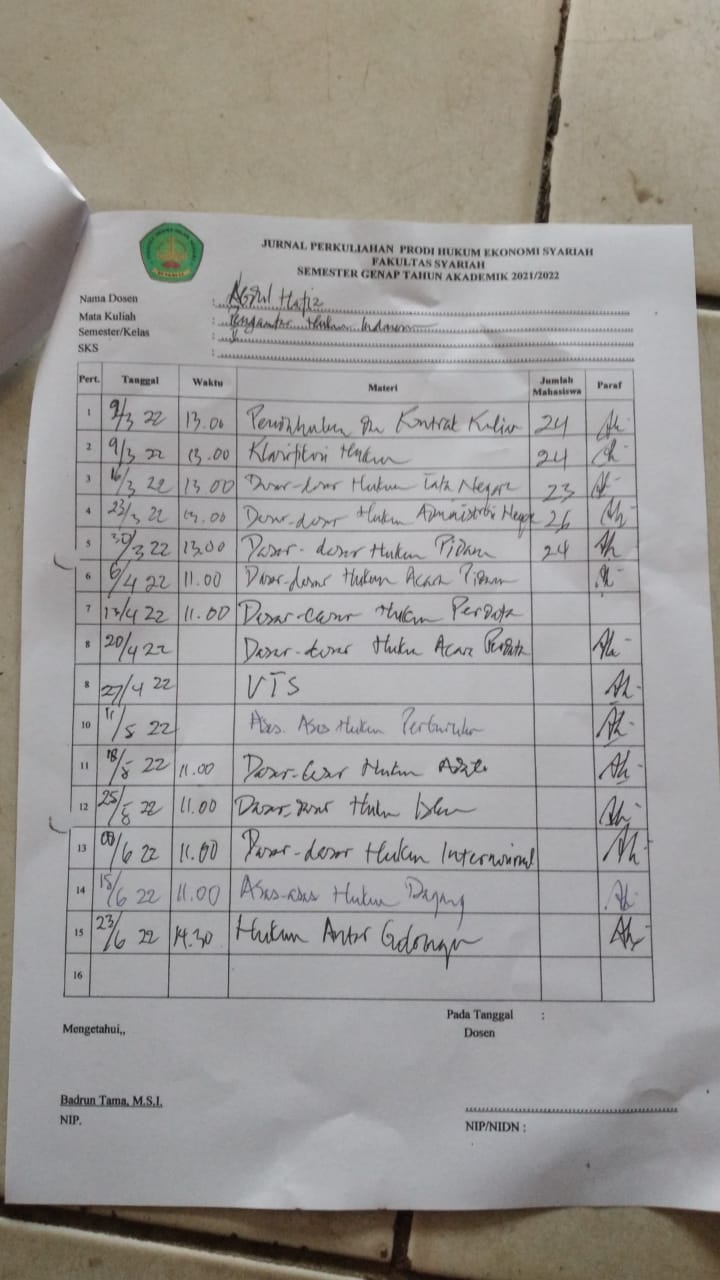 JURNAL PERKULIAHAN PRODI HUKUM EKONOMI SYARIAH
FAKULTAS SYARIAH
SEMESTER GENAP TAHUN AKADEMIK 2021/2022
Nama Dosen : Abdul Hafiz
Mata Kuliah : Pengantar Hukum Indonesia
Semester/Kelas :
SKS :
Pert. Tanggal Waktu Materi Jumlah Mahasiswa Paraf
1 2/3 22 13.00 Kontrak Kuliah 24
2 9/3 22 13.00 Klasifikasi Hukum 24
3 16/3 22 13.00 Dasar-dasar Hukum Tata Negara 23
4 23/3 22 13.00 Dasar-dasar Hukum Administrasi Negara 26
5 30/3 22 13.00 Dasar-dasar Hukum Pidana 24
6 6/4 22 11.00 Dasar-dasar Hukum Acara Pidana
7 13/4 22 11.00 Dasar-dasar Hukum Perdata
8 20/4 22 Dasar-dasar Hukum Acara Perdata
8 27/4 22 UTS
10 11/5 22 Asas-Asas Hukum
11 18/5 22 11.00 Dasar-dasar Hukum Adat
12 25/5 22 11.00 Dasar-dasar Hukum Islam
13 /6 22 11.00 Dasar-dasar Hukum Internasional
14 15/6 22 11.00 Asas-asas Hukum Dagang
15 23/6 22 14.30 Hukum Antar Golongan
16
Pada Tanggal :
Mengetahui,, Dosen
Badrun Tama, M.S.I.
NIP. NIP/NIDN :